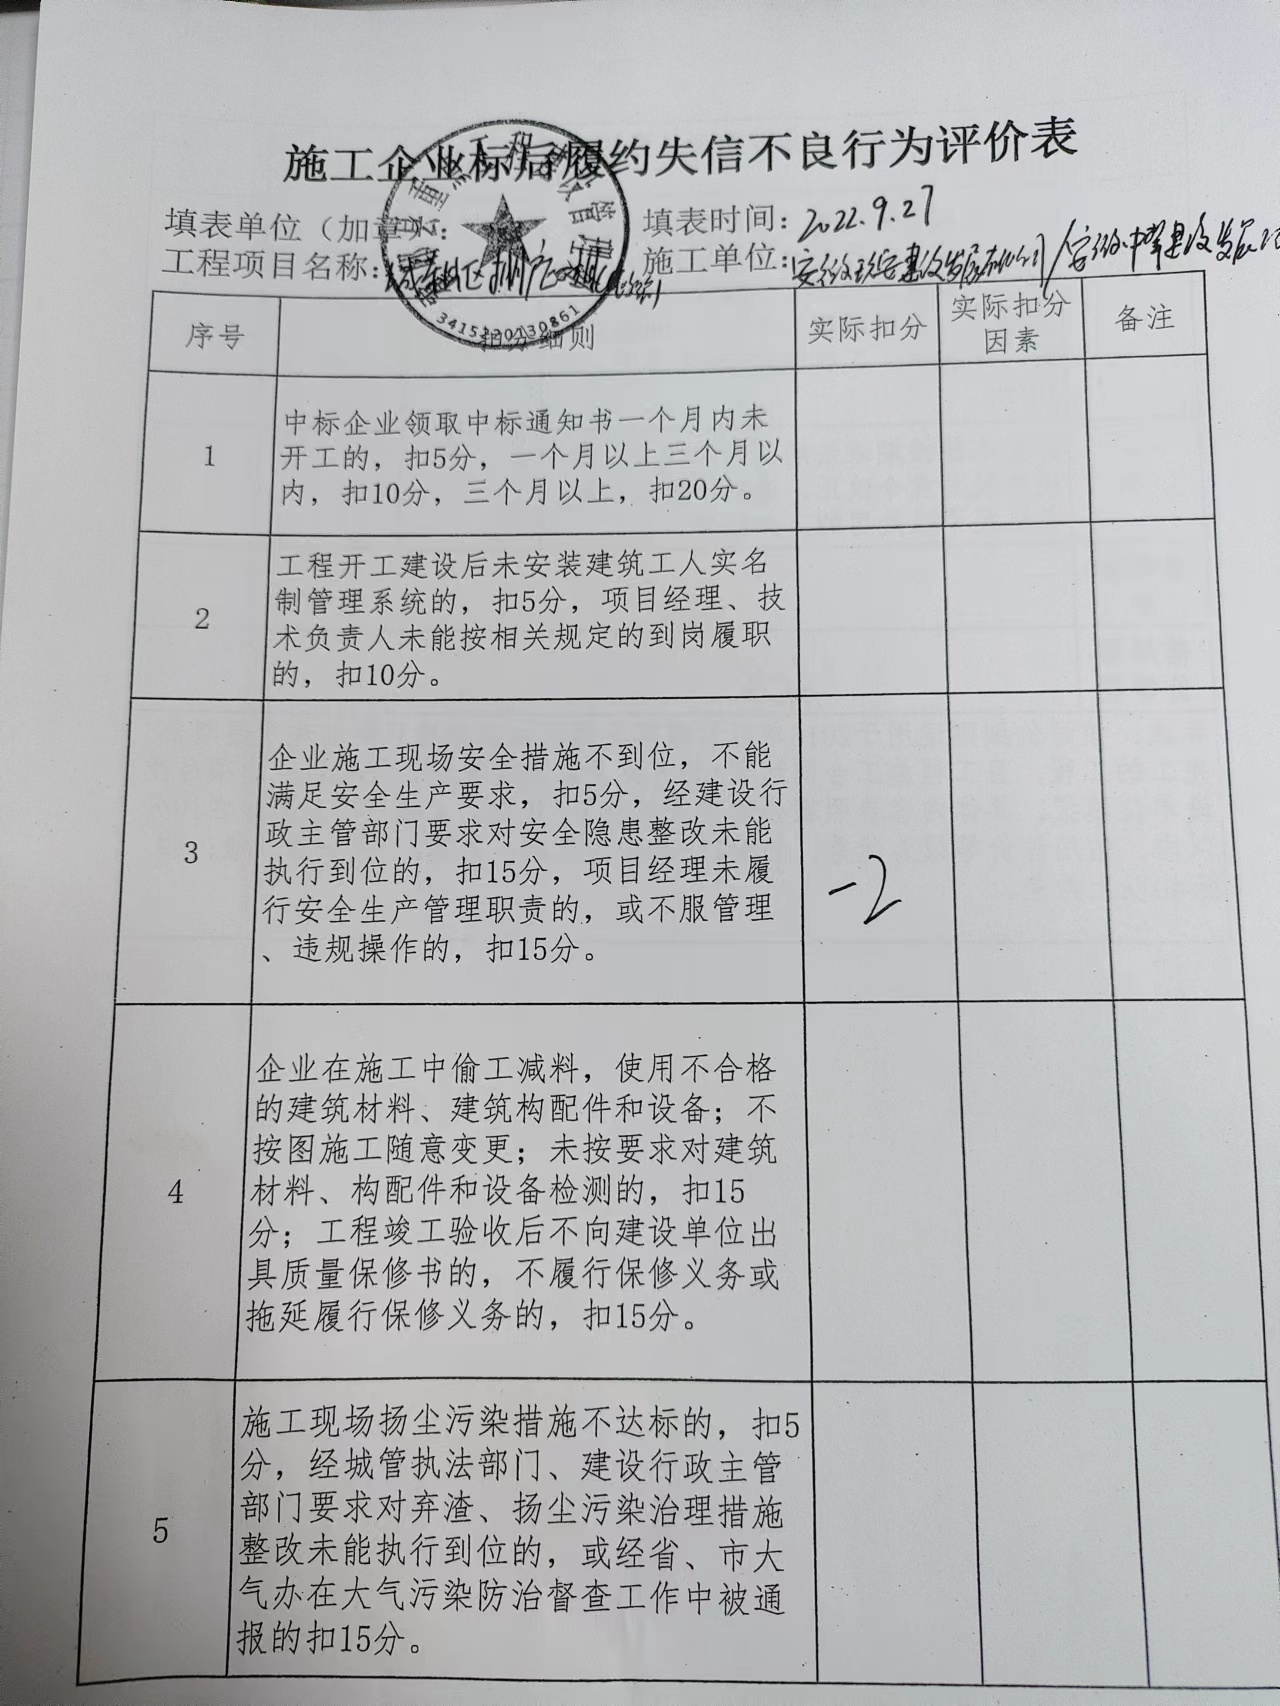 施工企业标后履约失信不良行为评价表
填表单位（加章）：
填表时间：2022.9.27
工程项目名称：
施工单位：
3415220130861
序号 扣分细则 实际扣分 实际扣分因素 备注
1
中标企业领取中标通知书一个月内未
开工的，扣5分，一个月以上三个月以
内，扣10分，三个月以上，扣20分。
2
工程开工建设后未安装建筑工人实名
制管理系统的，扣5分，项目经理、技
术负责人未能按相关规定的到岗履职
的，扣10分。
3
企业施工现场安全措施不到位，不能
满足安全生产要求，扣5分，经建设行
政主管部门要求对安全隐患整改未能
执行到位的，扣15分，项目经理未履
行安全生产管理职责的，或不服管理
、违规操作的，扣15分。
-2
4
企业在施工中偷工减料，使用不合格
的建筑材料、建筑构配件和设备；不
按图施工随意变更；未按要求对建筑
材料、构配件和设备检测的，扣15
分；工程竣工验收后不向建设单位出
具质量保修书的，不履行保修义务或
拖延履行保修义务的，扣15分。
5
施工现场扬尘污染措施不达标的，扣5
分，经城管执法部门、建设行政主管
部门要求对弃渣、扬尘污染治理措施
整改未能执行到位的，或经省、市大
气办在大气污染防治督查工作中被通
报的扣15分。